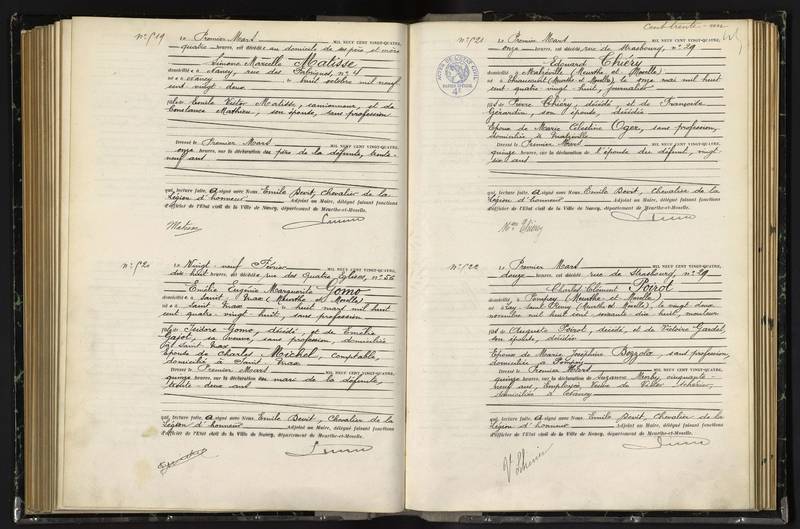 N° 519
Le Premier Mars MIL NEUF CENT VINGT-QUATRE,
quatre heures, est décédée au domicile de ses père et mère
Simone Marcelle Matisse
domiciliée à Nancy, rue des Fabriques, n° 4
née à Nancy le huit octobre mil neuf
cent vingt deux
fille de Emile Victor Matisse, camionneur, et de
Constance Mathieu, son épouse, sans profession
Dressé le Premier Mars MIL NEUF CENT VINGT-QUATRE,
onze heures, sur la déclaration du père de la défunte, trente-
neuf ans
qui, lecture faite, a signé avec Nous Emile Devit, Chevalier de la
Légion d'honneur Adjoint au Maire, délégué faisant fonctions
d'officier de l'Etat civil de la Ville de Nancy, département de Meurthe-et-Moselle.
Matisse
N° 520
Le Vingt neuf Février MIL NEUF CENT VINGT-QUATRE,
dix huit heures, est décédée rue des Quatre Eglises, n° 56
Emélie Eugénie Marguerite Gomo
domiciliée à Saint Max (Meurthe et Moselle)
née à Saint Max le huit mars mil huit
cent quatre-vingt huit, sans profession
fille de Isidore Gomo, décédé, et de Emélie
Gajot, sa veuve, sans profession, domiciliée
à Saint Max
Epouse de Charles Michel, comptable,
domicilié à Saint Max
Dressé le Premier Mars MIL NEUF CENT VINGT-QUATRE,
quinze heures, sur la déclaration du mari de la défunte,
trente deux ans
qui, lecture faite, a signé avec Nous Emile Devit, Chevalier de la
Légion d'honneur Adjoint au Maire, délégué faisant fonctions
d'officier de l'Etat civil de la Ville de Nancy, département de Meurthe-et-Moselle.
Cent trente un
N° 521
Le Premier Mars MIL NEUF CENT VINGT-QUATRE,
onze heures, est décédé rue de Strasbourg, n° 29
Edouard Thiéry
domicilié à Malzéville (Meurthe et Moselle)
né à (Meurthe et Moselle) le onze mai mil huit
cent quatre-vingt huit, journalier
fils de Pierre Thiéry, décédé et de Françoise
Gérardin, son épouse, décédée
Epoux de Marie Célestine Oger, sans profession,
domiciliée à Malzéville
Dressé le Premier Mars MIL NEUF CENT VINGT-QUATRE,
quinze heures, sur la déclaration de l'épouse du défunt, vingt
six ans
qui, lecture faite, a signé avec Nous Emile Devit, Chevalier de la
Légion d'honneur Adjoint au Maire, délégué faisant fonctions
d'officier de l'Etat civil de la Ville de Nancy, département de Meurthe-et-Moselle.
Mme Thiéry
N° 522
Le Premier Mars MIL NEUF CENT VINGT-QUATRE,
douze heures, est décédé rue de Strasbourg, n° 29
Charles Clément Poirot
domicilié à Pompey (Meurthe et Moselle)
né à Lay Saint (Meurthe et Moselle), le vingt deux
novembre mil huit cent soixante dix huit, monteur
fils de Auguste Poirot, décédé, et de Victoire Gardel,
son épouse, décédée
Epoux de Marie Joséphine Bozzolo, sans profession,
domiciliée à Pompey
Dressé le Premier Mars MIL NEUF CENT VINGT-QUATRE,
quinze heures, sur la déclaration de Suzanne cinquante-
neuf ans, employée, Veuve de Victor
domiciliée à Nancy
qui, lecture faite, a signé avec Nous Emile Devit, Chevalier de la
Légion d'honneur Adjoint au Maire, délégué faisant fonctions
d'officier de l'Etat civil de la Ville de Nancy, département de Meurthe-et-Moselle.